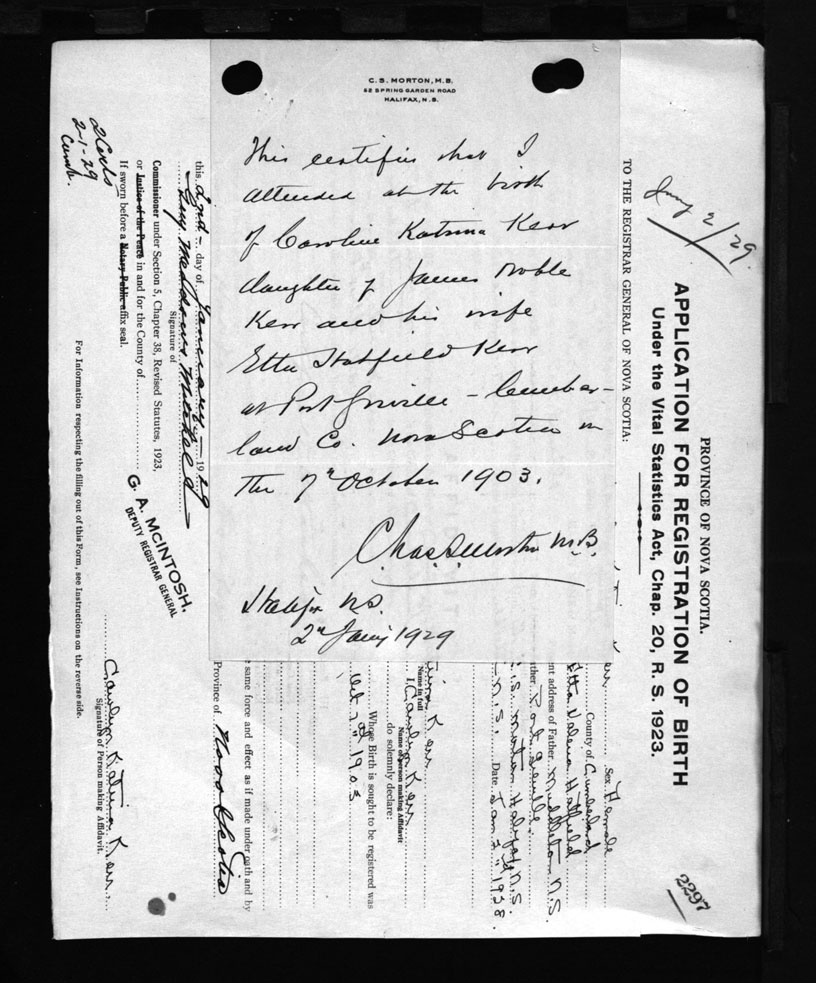 C. S. MORTON, M.B.
52 SPRING GARDEN ROAD
HALIFAX, N. S.
This certifies that I
attended at the birth
of Caroline Katrina Kerr
daughter of James Noble
Kerr and his wife
Etta Hatfield Kerr
at Port Greville - Cumber-
land Co. Nova Scotia on
the 7th October 1903.
Chas S Morton M.B.
Halifax N.S.
2nd Jany 1929
Jany 2/29.
PROVINCE OF NOVA SCOTIA.
APPLICATION FOR REGISTRATION OF BIRTH
Under the Vital Statistics Act, Chap. 20, R. S. 1923.
2297
TO THE REGISTRAR GENERAL OF NOVA SCOTIA:
Sex Female
County of Cumberland
Hatfield
nt address of Father Middleton N.S.
ther Port Greville
Morton Halifax N.S.
N.S. Date Jan 2nd
Kerr
Name in full
I, Kerr
Name of person making Affidavit
do solemnly declare:
Whose Birth is sought to be registered was
Oct 7th 1903
e same force and effect as if made under oath and by
Province of Nova Scotia
this 2nd day of January 1929
Guy Mitchell
Signature of
Commissioner under Section 5, Chapter 38, Revised Statutes, 1923,
or Justice of the Peace in and for the County of
If sworn before a Notary Public affix seal.
G. A. MCINTOSH.
DEPUTY REGISTRAR GENERAL
Kerr
Signature of Person making Affidavit.
For Information respecting the filling out of this Form, see Instructions on the reverse side.
2 Certs
2-1-29
Cumb.